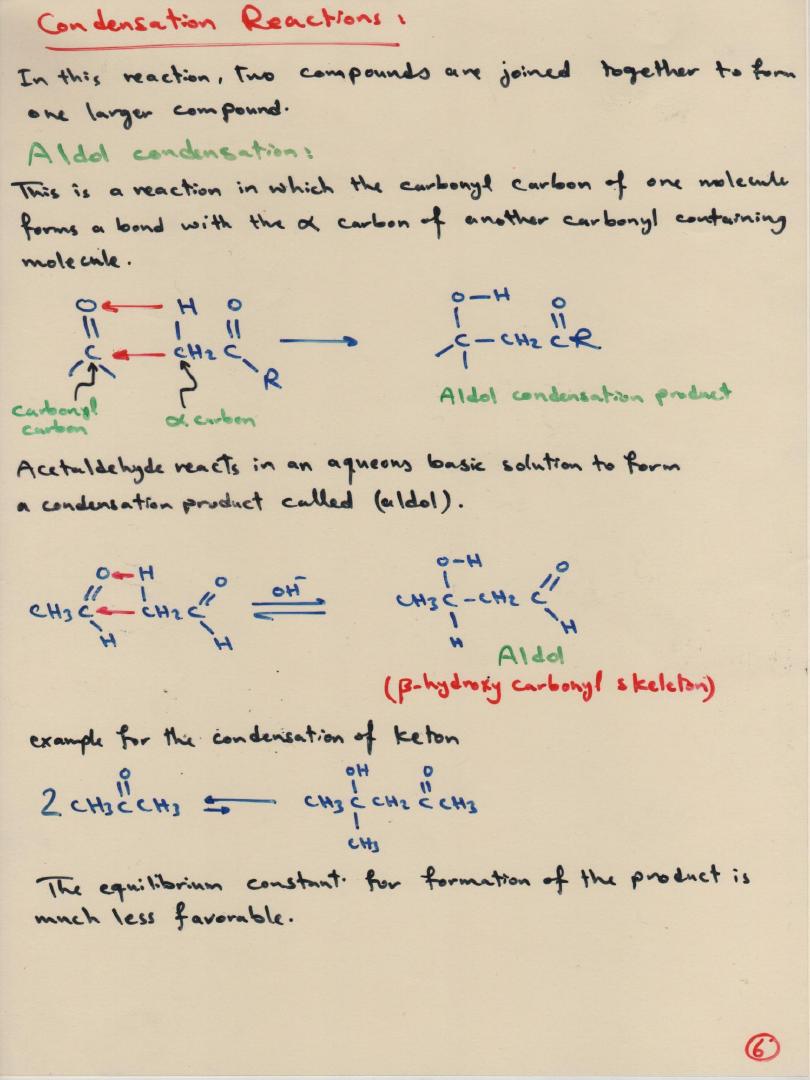 Condensation Reactions:
In this reaction, Two compounds are joined together to form
one larger compound.
Aldol condensation:
This is a reaction in which the carbonyl carbon of one molecule
forms a bond with the α carbon of another carbonyl containing
molecule.
O H O
C CH2 C R
carbonyl carbon
α carbon
O-H O
C-CH2 C R
Aldol condensation product
Acetaldehyde reacts in an aqueous basic solution to form
a condensation product called (aldol).
O H O
CH3 C CH2 C
H H
OH-
O-H O
CH3 C-CH2 C
H H
Aldol
(β-hydroxy carbonyl skeleton)
example for the condensation of keton
O
2 CH3 C CH3
OH O
CH3 C CH2 C CH3
CH3
The equilibrium constant. for formation of the product is
much less favorable.
6